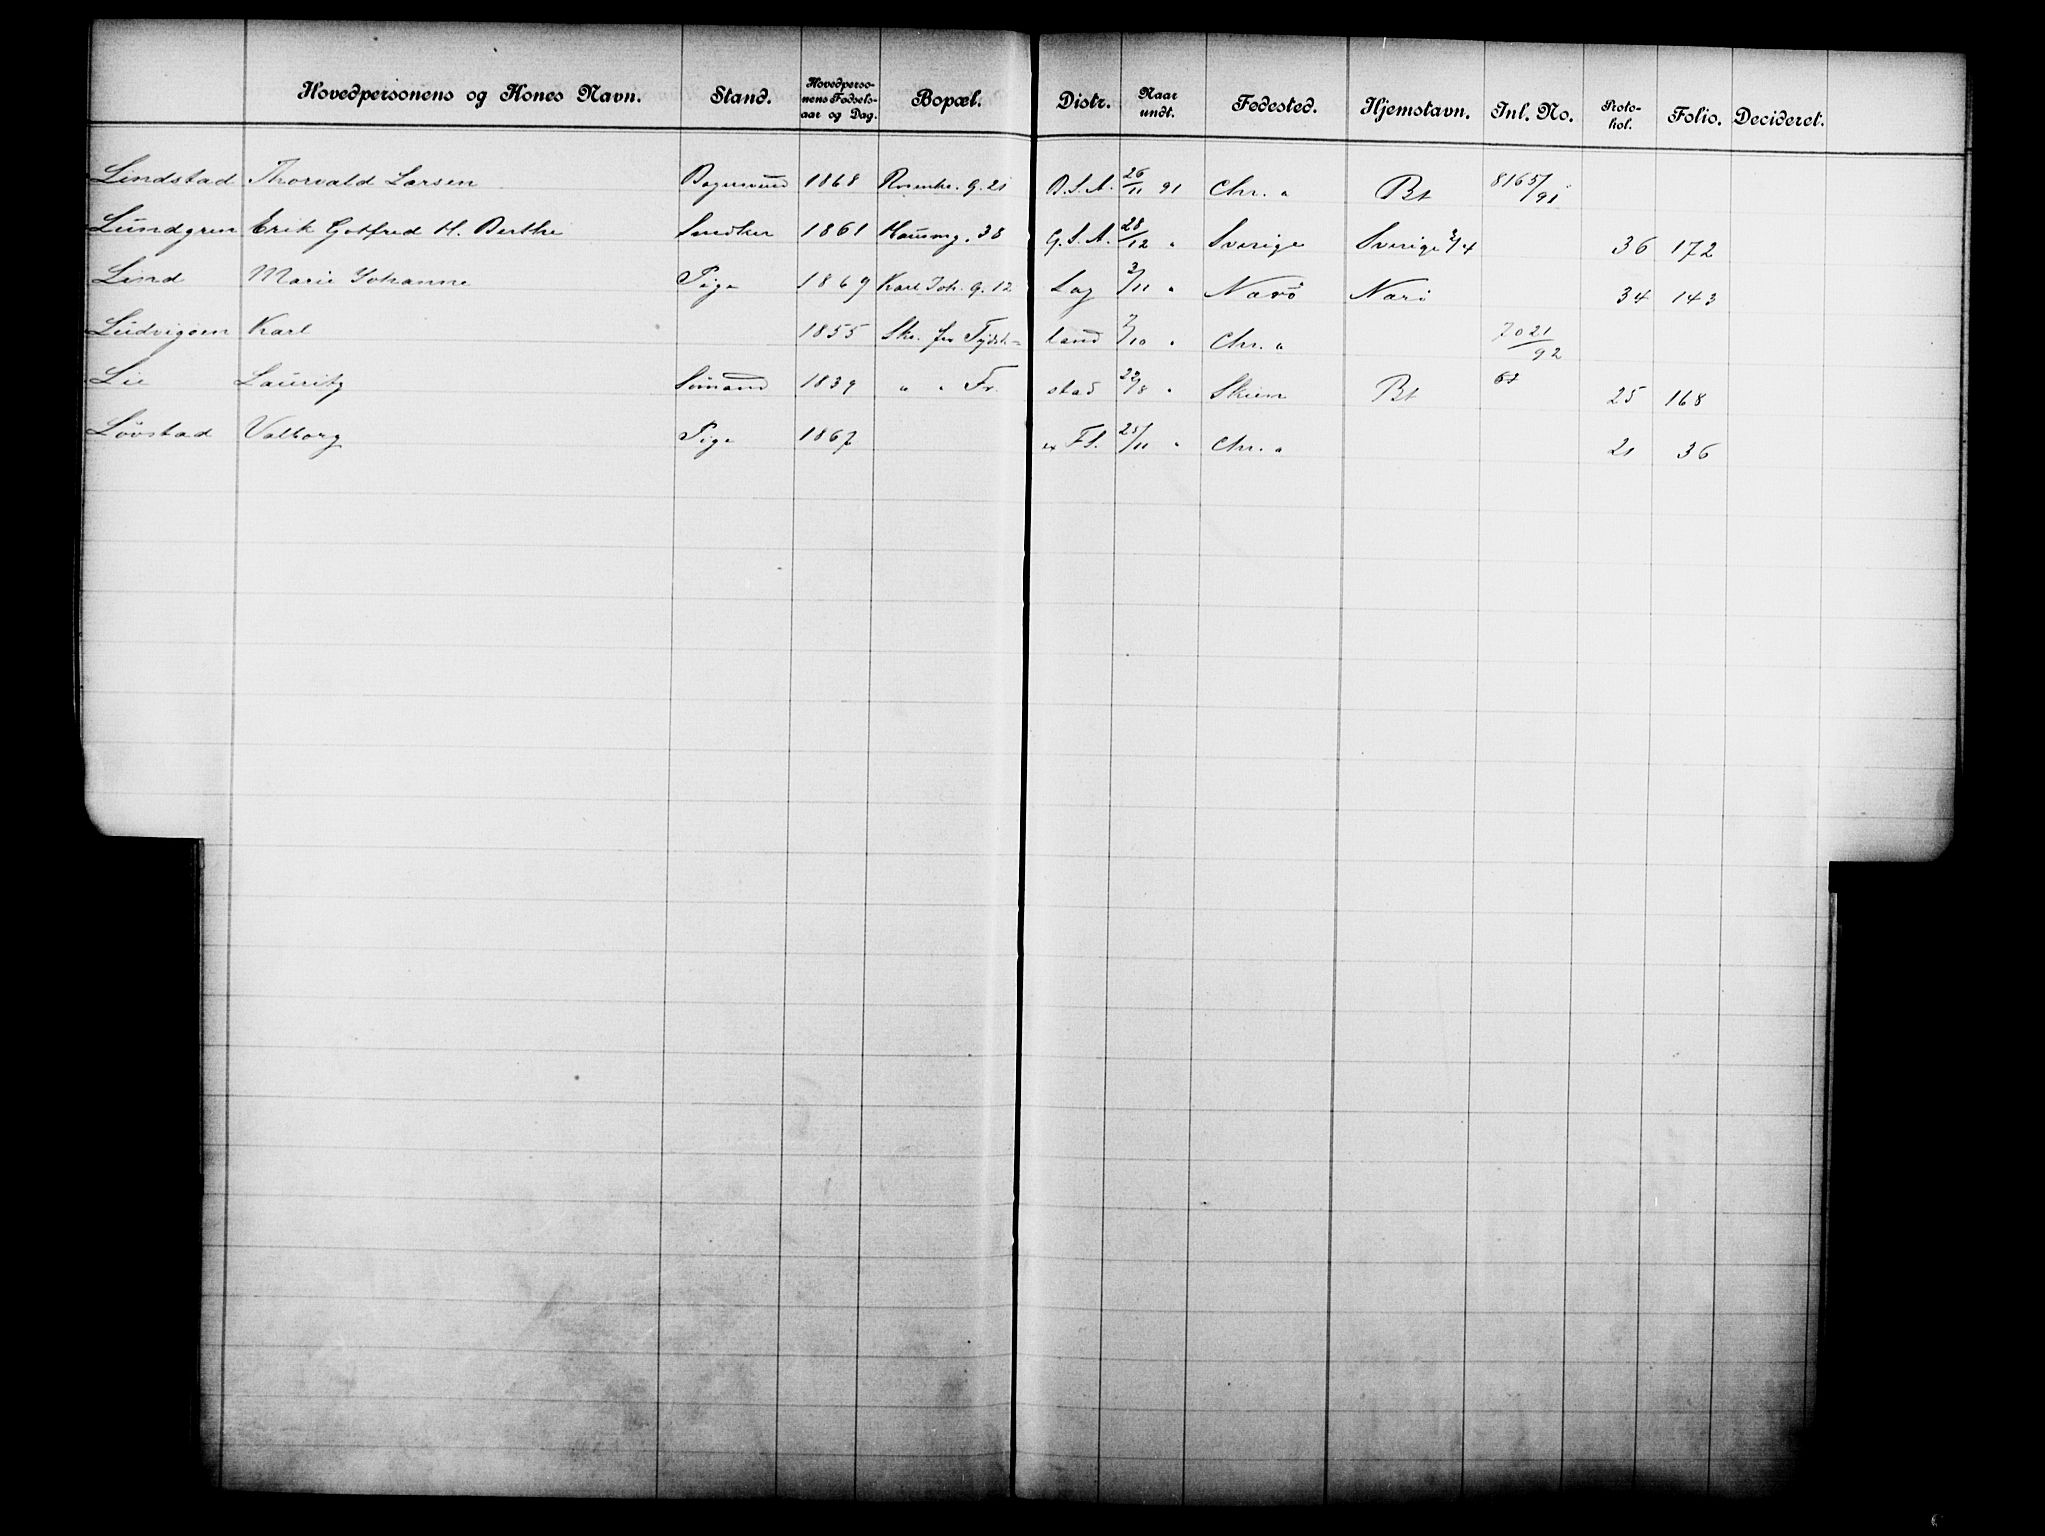 Hovedpersonens og Kones Navn. Stand. Hovedpersonens Fødselsaar og Dag. Bopæl. Distr. Naar undt. Fødested. Hjemstavn. Inl. No. Protokol. Folio. Decideret.
Lindstad Thorvald Larsen 1868 Rosenkr. g. 21 26/11 91 Chr. a Bt 8165/91
Lundgren Erik Gotfred H. Berthe Snedker 1861 Hausmg. 38 G. S. A. 28/12 " Sverige Sverige 36 172
Lind Marie Johanne Pige 1869 Karl Joh. g. 12 Lag 3/11 " Nærö Nærö 34 143
Ludvigsen Karl 1855 Skr. fra Tydsk= land 7/10 " Chr. a 7021/92
Lie Lauritz Sömand 1839 " " Fr. stad 22/8 " Skien Bt 25 168
Lövstad Valborg Pige 1867 25/11 " Chr. a 21 36